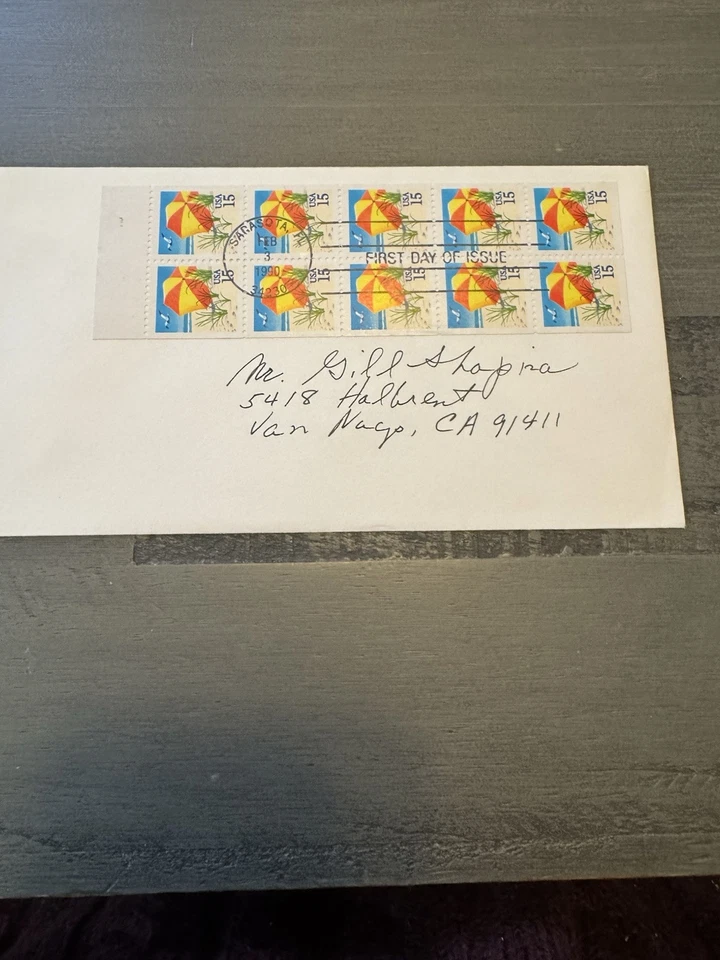 USA 15 USA 15 USA 15 USA 15 USA 15
SARASOTA, FL
FEB
3
1990
34230
FIRST DAY OF ISSUE
USA 15 USA 15 USA 15 USA 15 USA 15
Mr. Gill Shapira
5418 Halbrent
Van Nuys, CA 91411